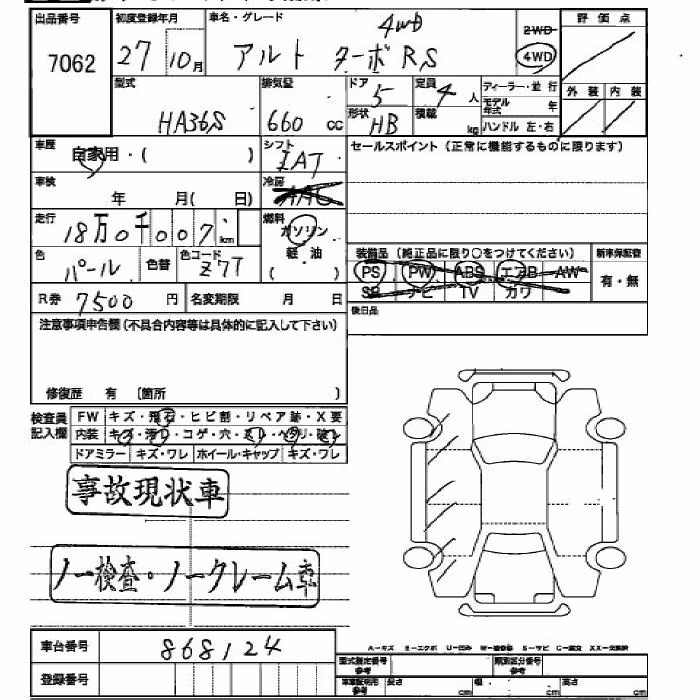 出品番号 初度登録年月 車名・グレード 評価点
7062 27年10月 アルト ターボRS 4WD
2WD
4WD
外装 内装
型式 HA36S
排気量 660 cc
ドア 5
形状 HB
定員 4人
積載 kg
ディーラー・並行
モデル年式 年
ハンドル 左・右
車歴 自家用・( )
シフト IAT
セールスポイント (正常に機能するものに限ります)
車検 年 月( 日)
冷房 AAC
走行 18万0千007km
燃料 ガソリン
軽・油
( )
色 パール 色替 色コード Z7T
装備品 (純正品に限り○をつけてください) 新車保証書
PS PW ABS エアB AW
SR ナビ TV カワ
有・無
R券 7500円 名変期限 月 日
後日品
注意事項申告欄(不具合内容等は具体的に記入して下さい)
修復歴 有 〔箇所 〕
検査員記入欄
FW キズ・飛石・ヒビ割・リペア跡・X要
内装 キズ・汚れ・コゲ・穴・スレ・ヘタリ・破レ
ドアミラー キズ・ワレ ホイール・キャップ キズ・ワレ
事故現状車
ノー検査・ノークレーム車
車台番号 868124
A-キズ E-エクボ U-凹み W-補修跡 S-サビ C-腐食 XX-交換済
登録番号
型式指定番号 参考 類別区分番号 参考
車車証明用 参考 長さ cm 幅 cm 高さ cm